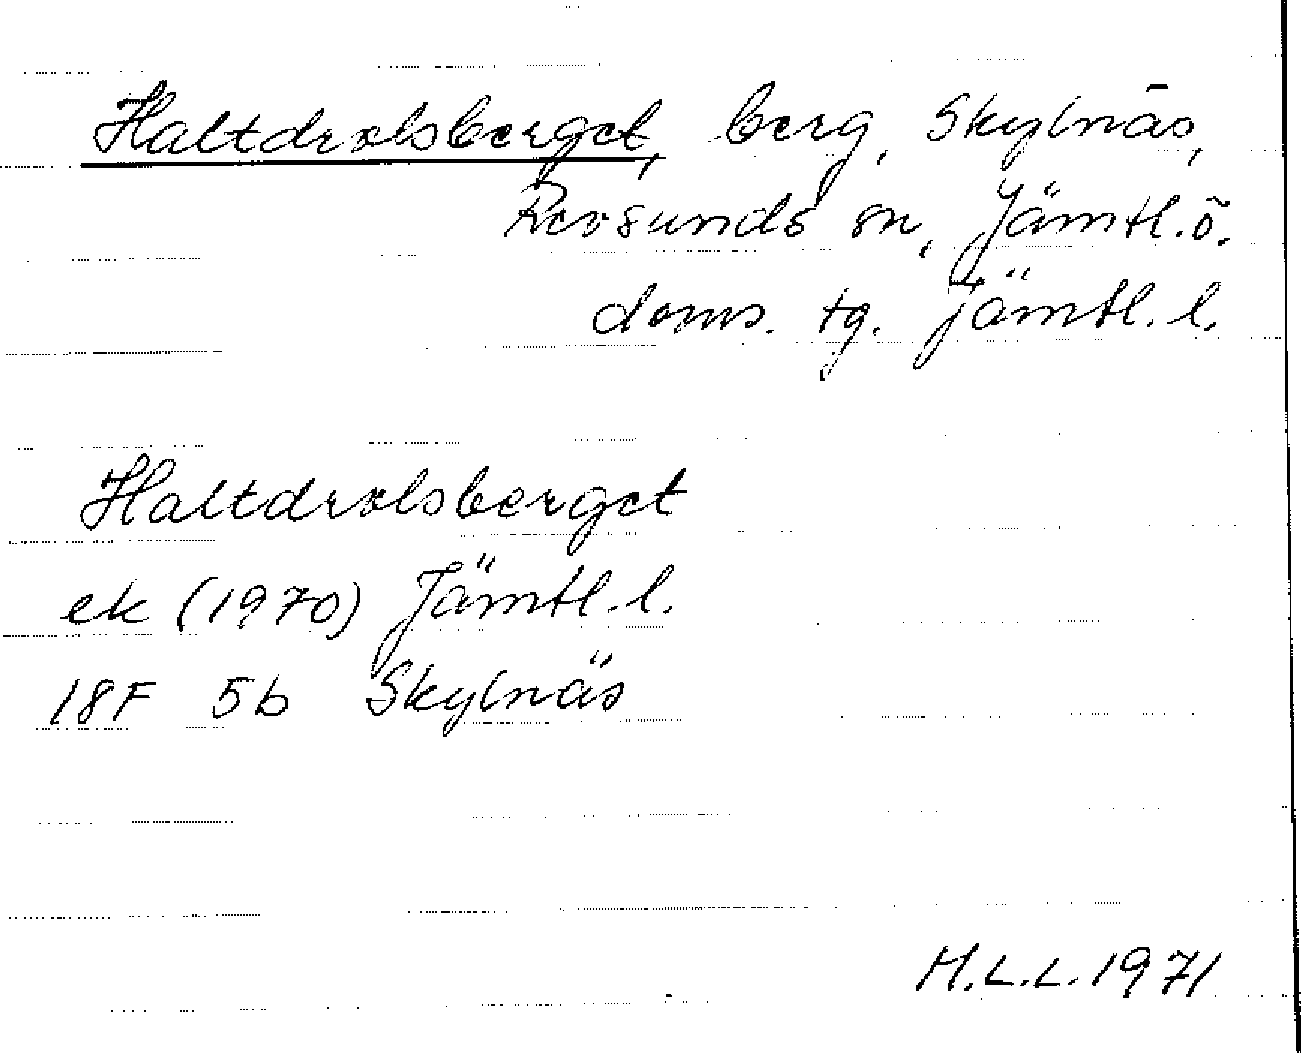 Haltdrolsberget, berg, Skylnäs,
Revsunds sn, Jämtl.ö.
doms. tg. Jämtl. l.
Haltdrolsberget
ek (1970) Jämtl. l.
18F 5b Skylnäs
H.L.L. 1971